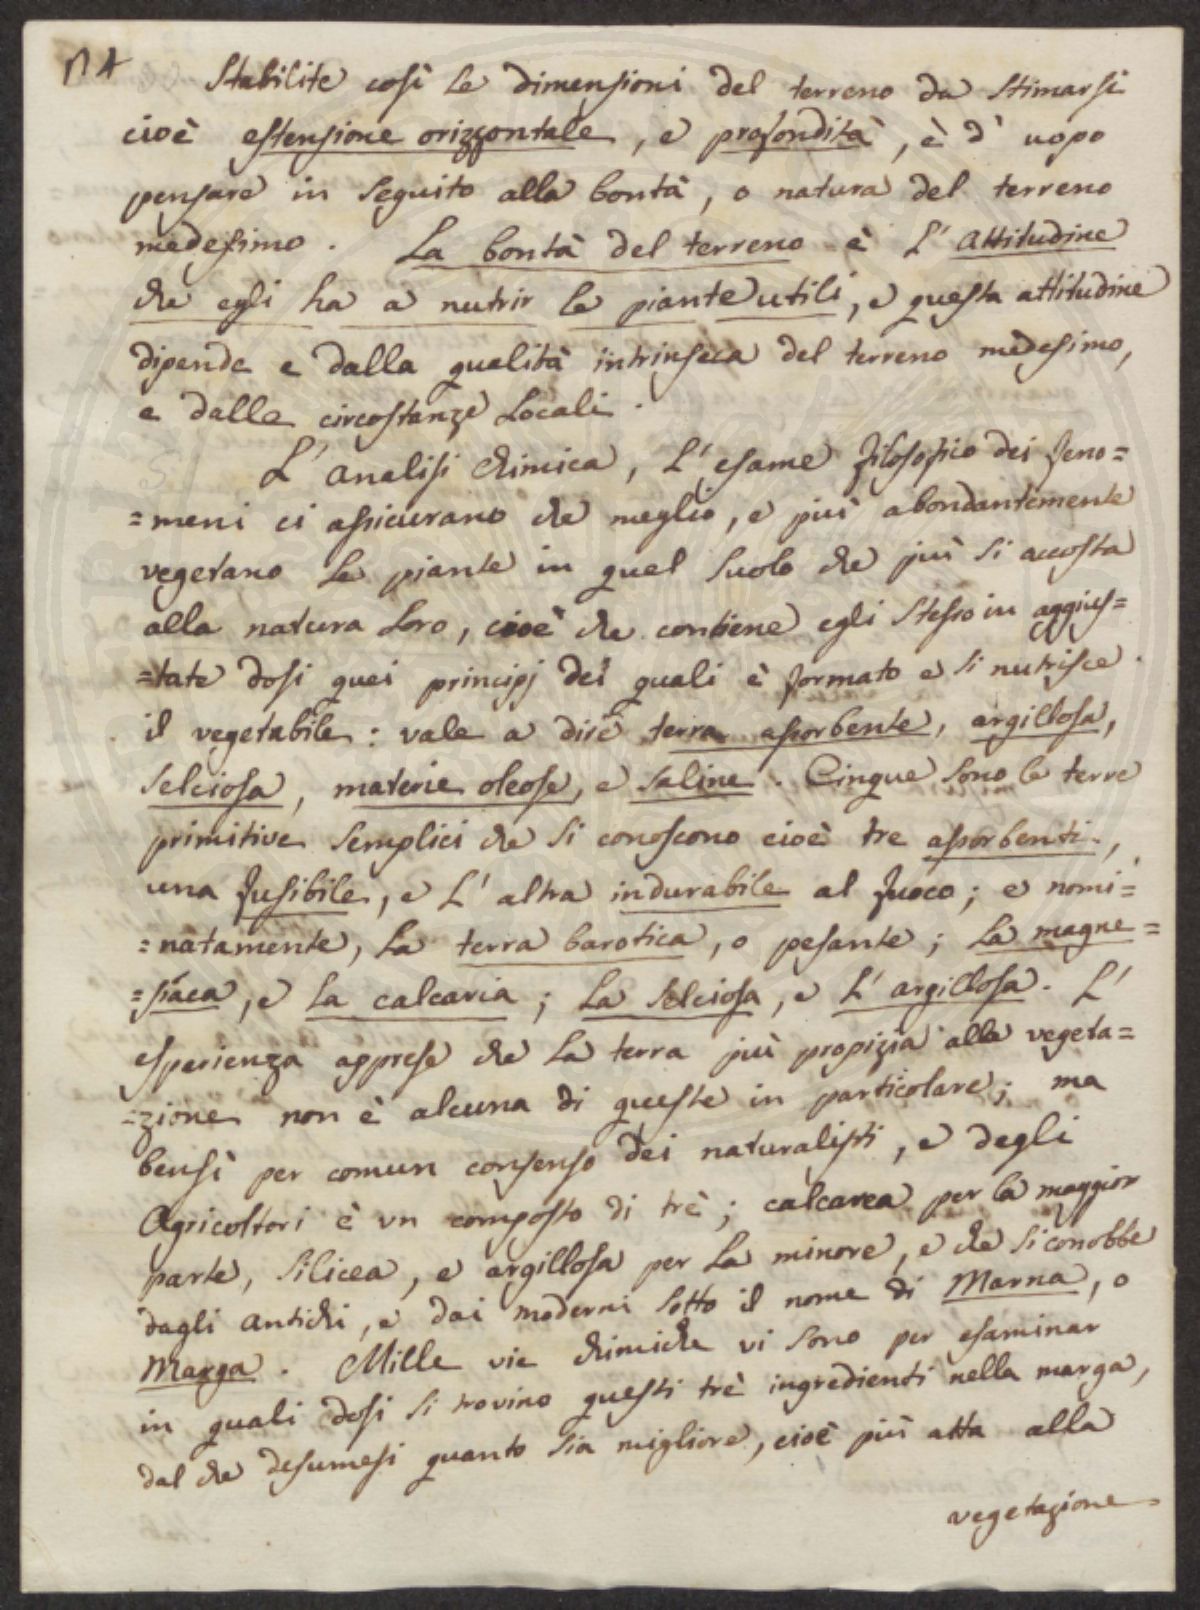 n 4
Stabilite così le dimensioni del terreno da stimarsi
cioè estensione orizzontale, e profondità, è d' uopo
pensare in seguito alla bontà, o natura del terreno
medesimo. La bontà del terreno è l' attitudine
che egli ha a nutrir le piante utili, e questa attitudine
dipende e dalla qualità intrinseca del terreno medesimo,
e dalle circostanze locali.
L' analisi chimica, l' esame filosofico dei feno=
=meni ci assicurano che meglio, e più abondantemente
vegetano le piante in quel suolo che più si accosta
alla natura loro, cioè che contiene egli stesso in aggius=
=tate dosi quei principj dei quali è formato e si nutrisce
il vegetabile: vale a dire terra assorbente, argillosa,
selciosa, materie oleose, e saline. Cinque sono le terre
primitive semplici che si conoscono cioè tre assorbenti,
una fusibile, e l' altra indurabile al fuoco; e nomi=
=natamente, la terra barotica, o pesante; la magne=
=siaca, e la calcaria; la selciosa, e l' argillosa. L'
esperienza apprese che la terra più propizia alla vegeta=
=zione non è alcuna di queste in particolare; ma
bensì per comun consenso dei naturalisti, e degli
Agricoltori è un composto di trè; calcarea per la maggior
parte, silicea, e argillosa per la minore, e che si conobbe
dagli antichi, e dai moderni sotto il nome di Marna, o
Marga. Mille vie chimiche vi sono per esaminar
in quali dosi si trovino questi trè ingredienti nella marga,
dal che desumesi quanto sia migliore, cioè più atta alla
vegetazione